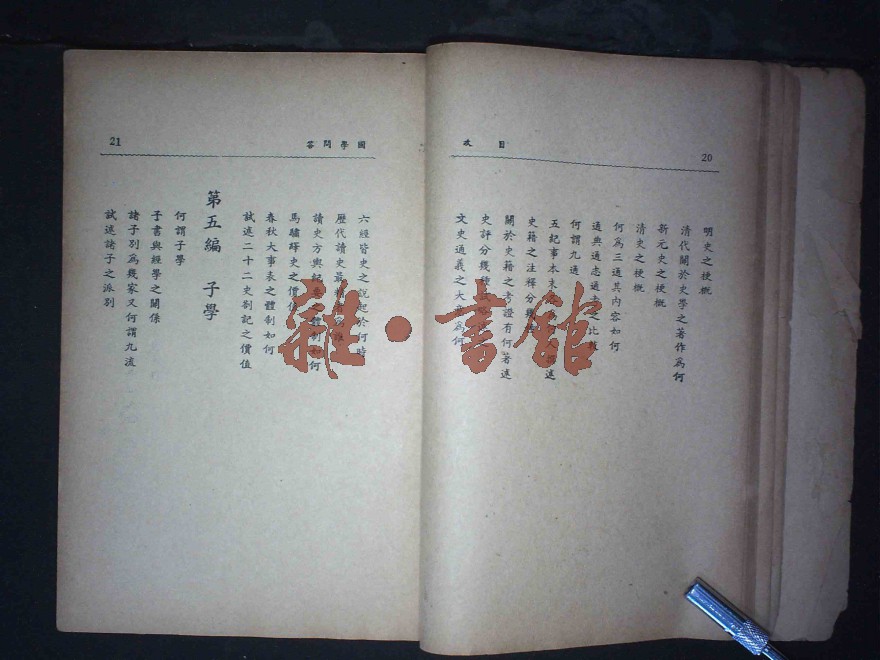 20
目次
明史之梗概
清代關於史學之著作為何
新元史之梗概
清史之梗概
何為三通其內容如何
通典通志通考之比較
何謂九通
五紀事本末
史籍之注釋分幾
關於史籍之考證有何著述
史評分幾種
文史通義之大旨為何
21
國學問答
六經皆史之說起於何時
歷代讀史最
讀史方輿紀要之體制如何
馬驌繹史之價值
春秋大事表之體制如何
試述二十二史劄記之價值
第五編 子學
何謂子學
子書與經學之關係
諸子別為幾家又何謂九流
試述諸子之派別
雜·書館